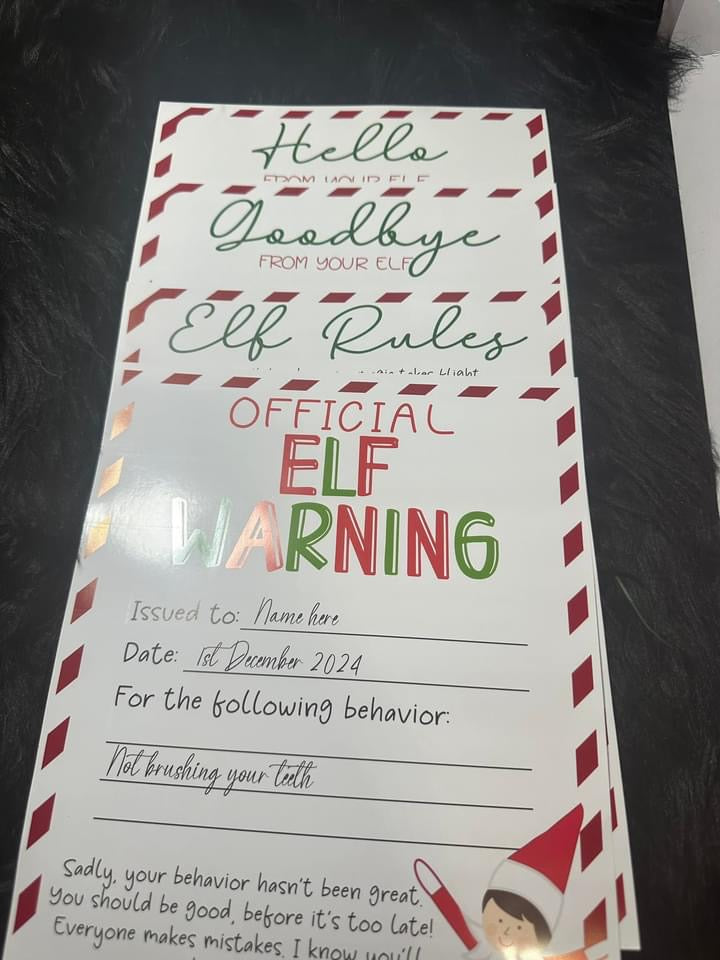 Hello
FROM YOUR ELF
Goodbye
FROM YOUR ELF
Elf Rules
flight
OFFICIAL
ELF
WARNING
Issued to: Name here
Date: 1st December 2024
For the following behavior:
Not brushing your teeth
Sadly, your behavior hasn't been great.
You should be good, before it's too late!
Everyone makes mistakes. I know you'll